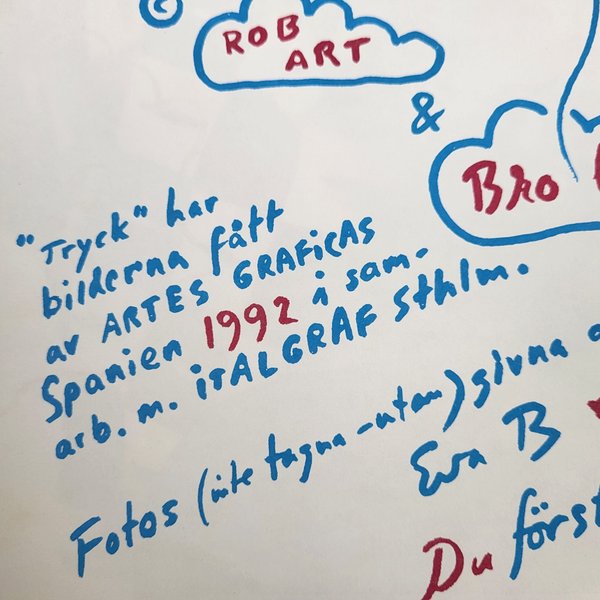 ©
ROB
ART
&
Bro
"Tryck" har
bilderna fått
av ARTES GRAFiCAS
Spanien 1992 i sam-
arb. m. iTALGRAF Sthlm.
Fotos (inte tagna -utan) givna a
Eva B
Du först